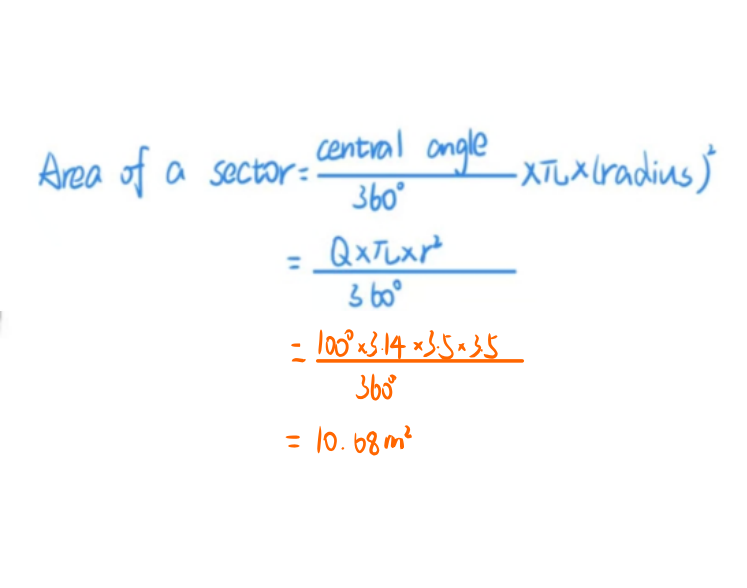 Area of a sector = central angle / 360° × π × (radius)²
= Q × π × r² / 360°
= 100° × 3.14 × 3.5 × 3.5 / 360°
= 10.68 m²